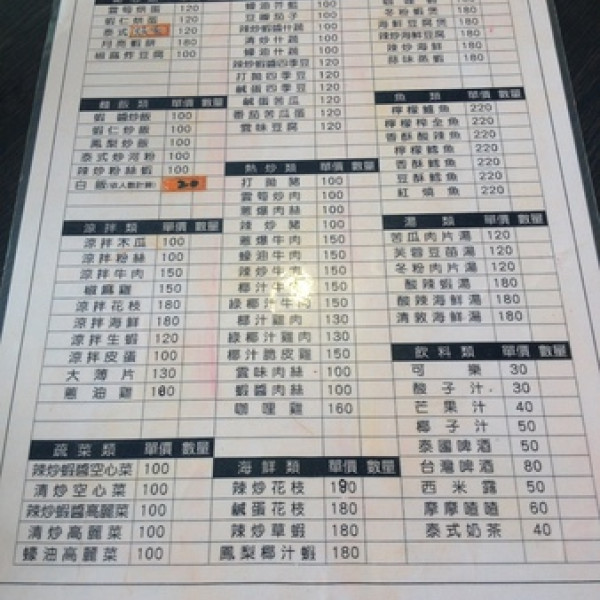 雲筍烘蛋 120
蝦仁烘蛋 120
泰式 120
月亮蝦餅 180
椒麻炸豆腐 100
麵飯類 單價 數量
蝦醬炒飯 100
蝦仁炒飯 100
鳳梨炒飯 100
泰式炒河粉 100
辣炒粉絲蝦 100
白飯(依人數計算) 20
涼拌類 單價 數量
涼拌木瓜 100
涼拌粉絲 100
涼拌牛肉 150
椒麻雞 150
涼拌花枝 180
涼拌海鮮 180
涼拌生蝦 120
涼拌皮蛋 100
大薄片 130
蔥油雞 180
蔬菜類 單價 數量
辣炒蝦醬空心菜 100
清炒空心菜 100
辣炒蝦醬高麗菜 100
清炒高麗菜 100
蠔油高麗菜 100
蠔油芥藍 100
豆瓣茄子 100
辣炒蝦醬什蔬 100
清炒什蔬 100
蠔油什蔬 100
辣炒蝦醬四季豆 120
打拋四季豆 120
鹹蛋四季豆 120
鹹蛋苦瓜 120
番茄苦瓜蛋 120
雲味豆腐 120
熱炒類 單價 數量
打拋豬 100
雲筍炒肉 100
蔥爆肉絲 100
辣炒豬 100
蔥爆牛肉 150
蠔油牛肉 150
辣炒牛肉 150
椰汁牛肉 150
綠椰汁牛肉 150
椰汁雞肉 130
綠椰汁雞肉 130
椰汁脆皮雞 150
雲味肉絲 100
蝦醬肉絲 100
咖哩雞 160
海鮮類 單價 數量
辣炒花枝 180
鹹蛋花枝 180
辣炒草蝦 180
鳳梨椰汁蝦 180
冬粉蝦煲 180
海鮮豆腐煲 180
辣炒海鮮豆腐 180
辣炒海鮮 180
蒜味蒸蝦 180
魚類 單價 數量
檸檬鱸魚 220
檸檬炸全魚 220
香酥酸辣魚 220
檸檬鱈魚 220
香酥鱈魚 220
豆酥鱈魚 220
紅燒魚 220
湯類 單價 數量
苦瓜肉片湯 120
芙蓉豆苗湯 120
冬粉肉片湯 120
酸辣蝦湯 180
酸辣海鮮湯 180
清燉海鮮湯 180
飲料類 單價 數量
可樂 30
酸子汁 30
芒果汁 40
椰子汁 50
泰國啤酒 50
台灣啤酒 80
西米露 50
摩摩喳喳 60
泰式奶茶 40